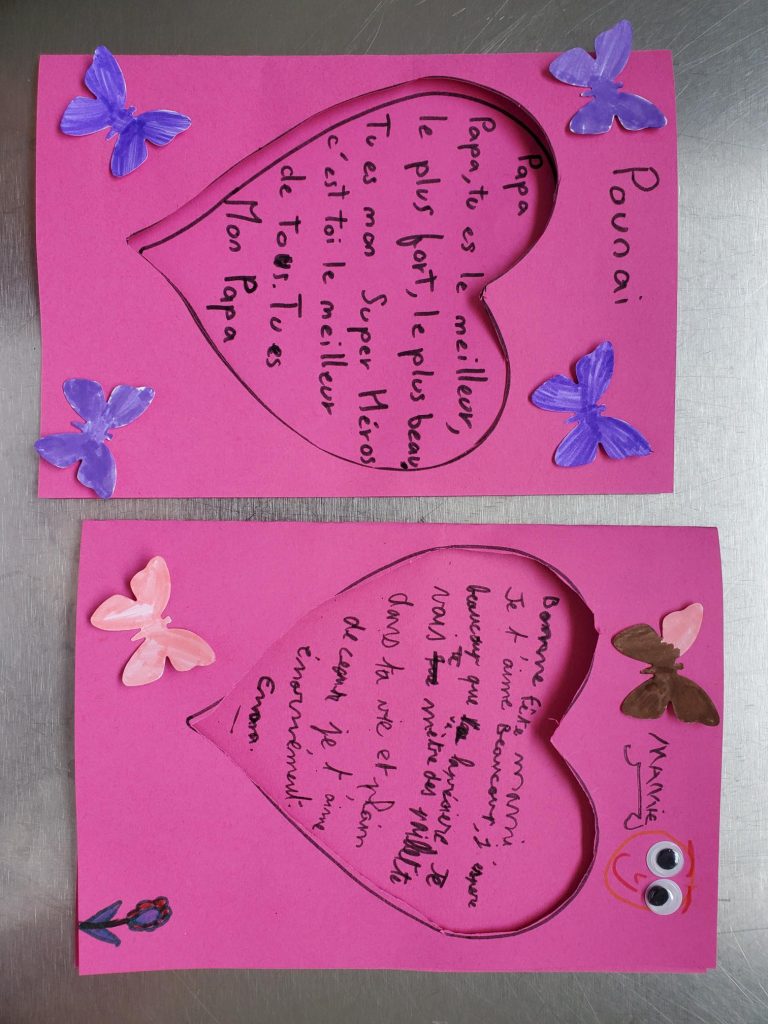 Pounai
Papa
Papa, tu es le meilleur,
le plus fort, le plus beau
Tu es mon Super Héros
c'est toi le meilleur
de tous. Tu es
Mon Papa
MAMIE
Bonne fête mami
Je t'aime Beaucoup, J'espère
beaucoup que
vais mètre des
dans ta vie et plain
de cœur je t'aime
énormément.